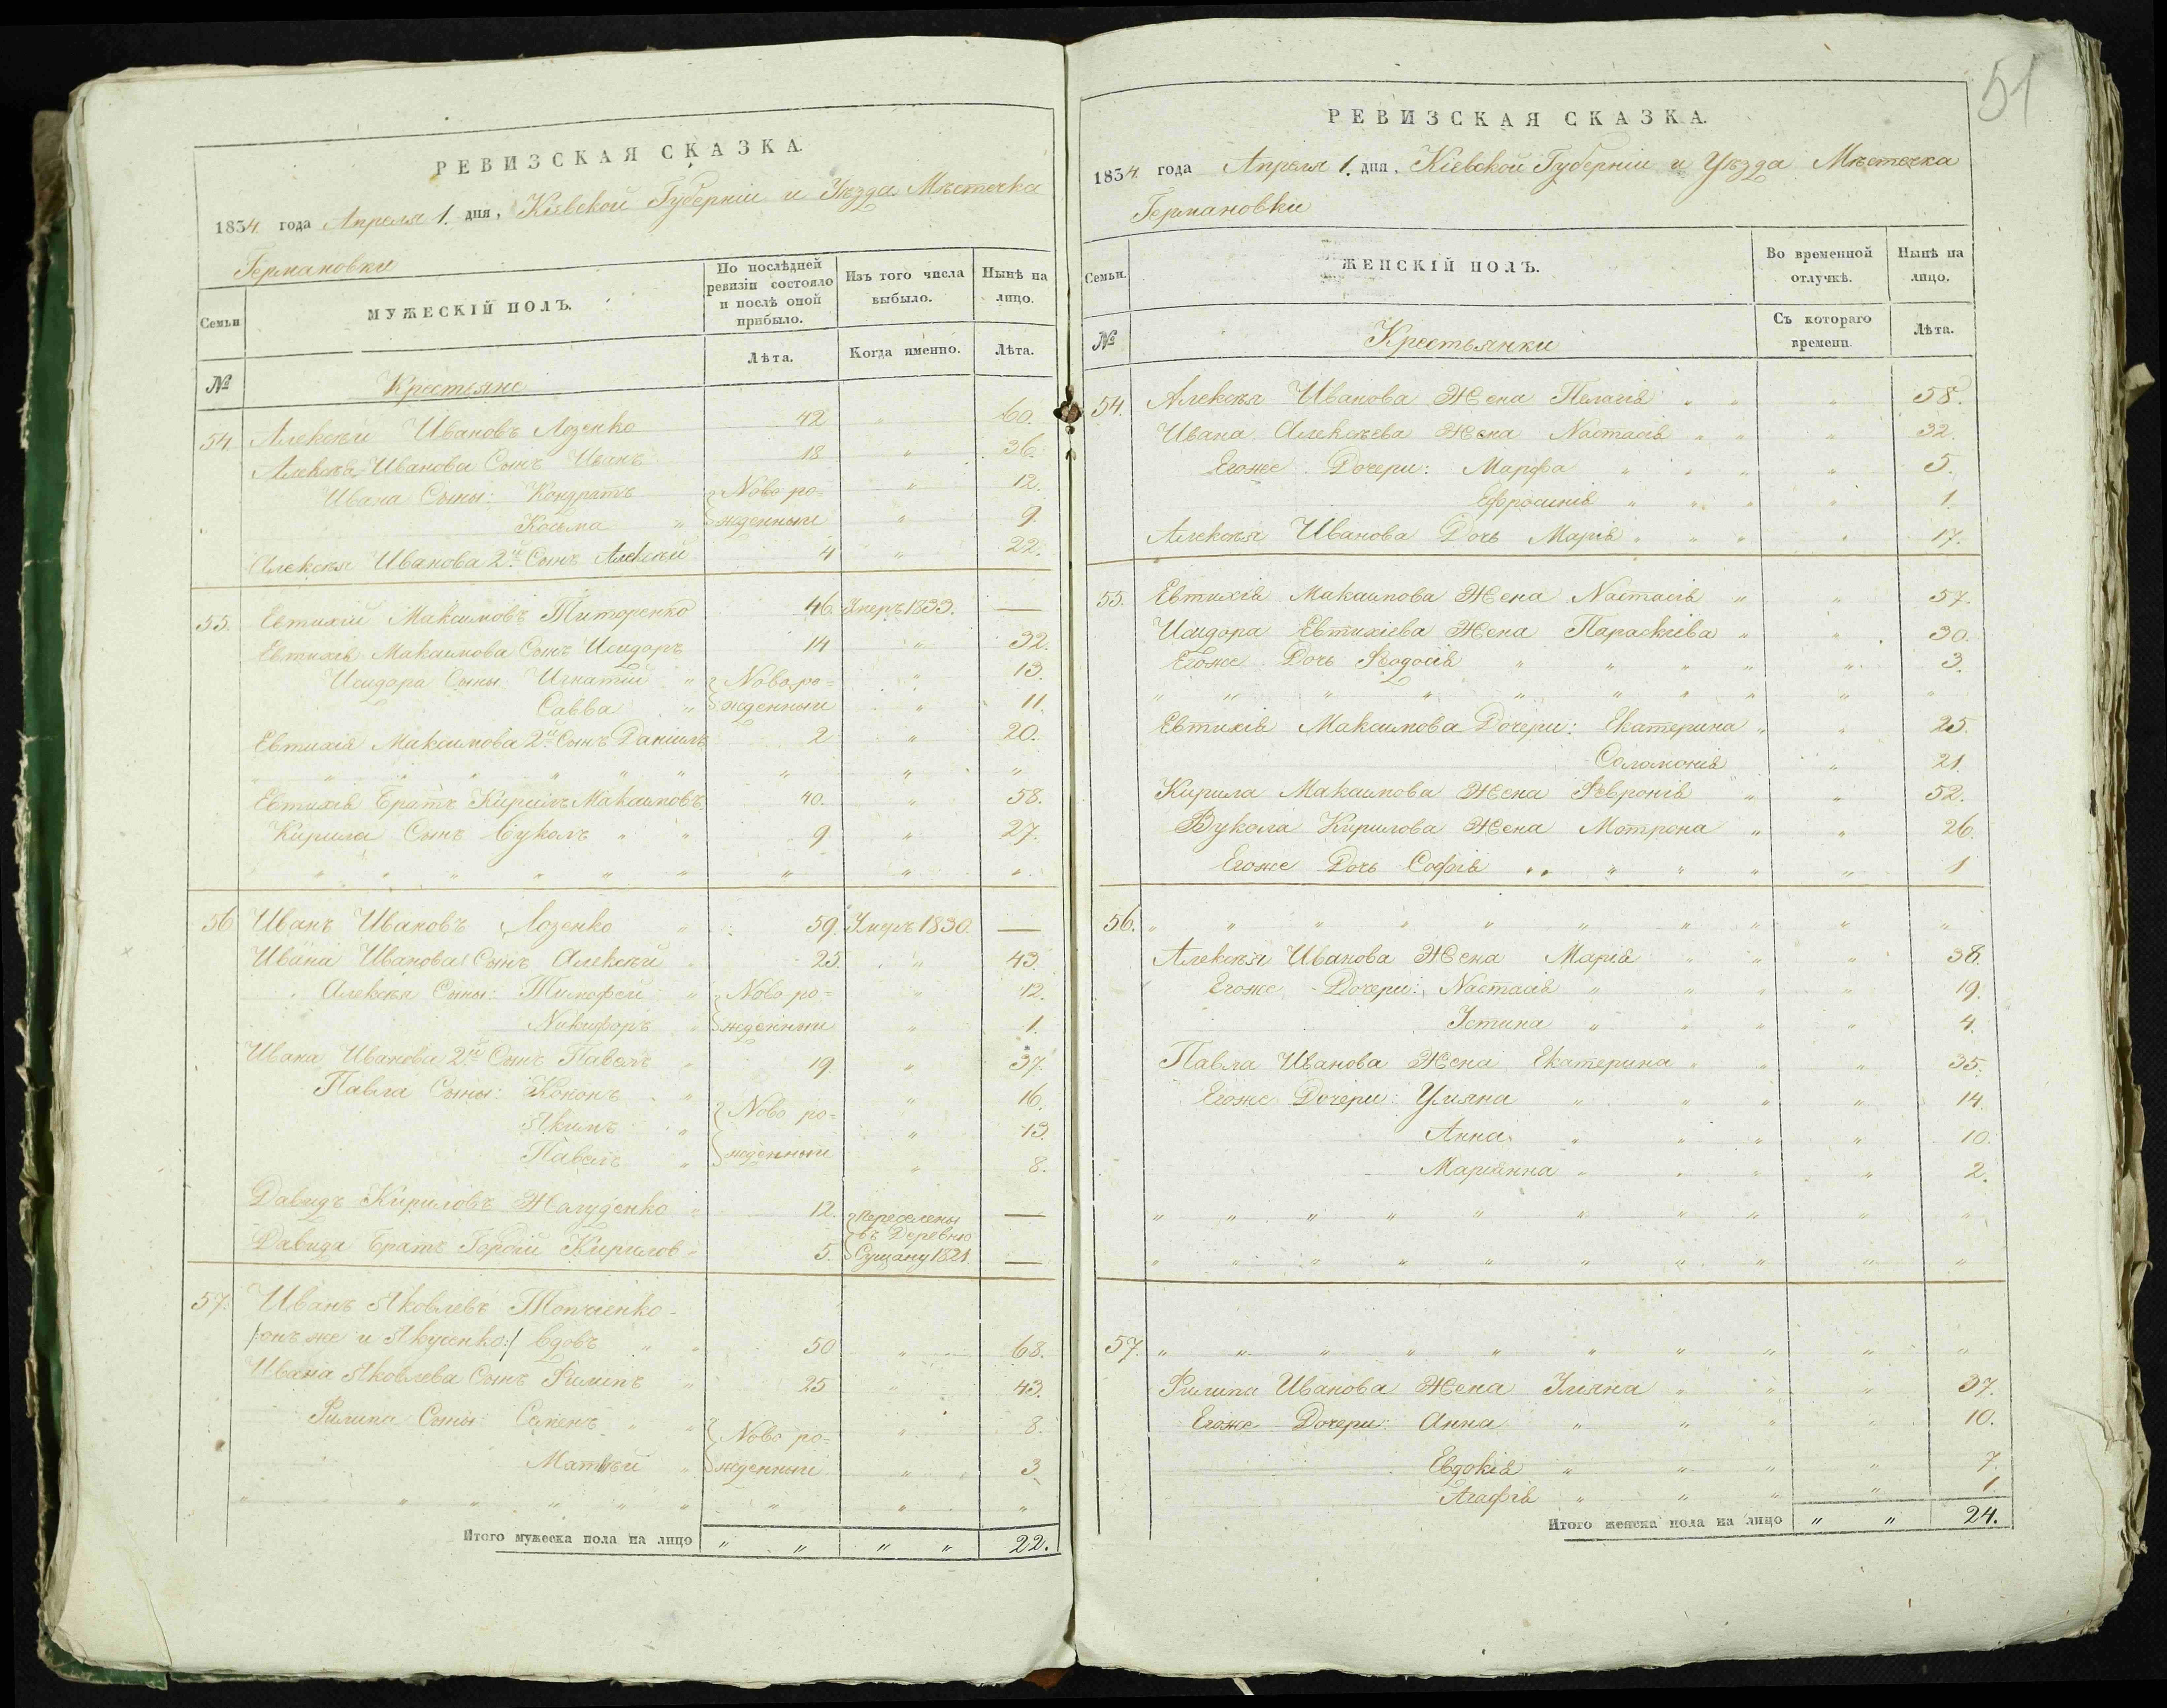 РЕВИЗСКАЯ СКАЗКА.
1834. года Апреля 1. дня, Кіевской Губерніи и Уѣзда Мѣстечка
Германовки
Семьи
МУЖЕСКІЙ ПОЛЪ.
По послѣдней ревизіи состояло и послѣ оной прибыло.
Изъ того числа выбыло.
Нынѣ на лицо.
№
Крестьяне
Лѣта.
Когда именно.
Лѣта.
54. Алексѣй Ивановъ Лозенко 42 " 60.
Алексѣя Иванова Сынъ Иванъ 18 " 36.
Ивана Сыны: Кондратъ Ново ро= " 12.
Косьма " жденныи " 9.
Алексѣя Иванова 2й Сынъ Алексѣй 4 " 22.
55. Евтихій Максимовъ Титоренко 46. Умеръ 1833. —
Евтихія Максимова Сынъ Исидоръ 14 " 32.
Исидора Сыны Игнатій " Ново ро= " 13.
Савва " жденныи " 11.
Евтихія Максимова 2й Сынъ Даніилъ 2 " 20.
" " " " " " " " " "
Евтихія Братъ Кирилъ Максимовъ 40. " 58.
Кирила Сынъ Вуколъ " " 9 " 27.
" " " " " " " " " "
56 Иванъ Ивановъ Лозенко " 59. Умръ 1830. —
Ивана Иванова Сынъ Алексѣй " 25. " 43.
Алексѣя Сыны: Тимофей " Ново ро= " 12.
Никифоръ " жденныи " 1.
Ивана Иванова 2й Сынъ Павелъ " 19 " 37.
Павла Сыны: Кононъ " Ново ро= " 16.
Якимъ " " 13.
Павелъ " жденныи " 8.
Давидъ Кириловъ Жалуденко " 12. переселены —
въ Деревню
Давида Братъ Гордій Кирилов " 5. Сущану 1821 —
57. Иванъ Яковлевъ Топчіенко
/:онъ же и Якученко:/ вдовъ " " 50 " 68.
Ивана Яковлева Сынъ Филипъ " 25 " 43.
Филипа Сыны: Семенъ " " Ново ро= " 8.
Матвѣй " жденныи " 3.
" " " " " " " " "
Итого мужеска пола на лицо " " " " 22.
51
РЕВИЗСКАЯ СКАЗКА.
1834. года Апреля 1. дня, Кіевской Губерніи и Уѣзда Мѣстечка
Германовки
Семьи.
ЖЕНСКІЙ ПОЛЪ.
Во временной отлучкѣ.
Нынѣ на лицо.
№
Крестьянки
Съ котораго времени.
Лѣта.
54. Алексѣя Иванова Жена Пелагія " " " 58.
Ивана Алексѣева Жена Настасія " " " 32.
Егоже Дочери: Марфа " " " " 5.
Ефросинія " " " " 1.
Алексѣя Иванова Дочь Марія " " " " 17.
55. Евтихія Максимова Жена Настасія " " 57.
Исидора Евтихіева Жена Параскіева " " 30.
Егоже Дочь Ѳеодосія " " " " " 3.
" " " " " " " " " "
Евтихія Максимова Дочери: Екатерина " " 25.
Соломонія " 21.
Кирила Максимова Жена Февронія " " 52.
Вукола Кирилова Жена Мотрона " " 26.
Егоже Дочь Софія " " " " " 1
56. " " " " " " " " " "
Алексѣя Иванова Жена Марія " " " 38.
Егоже Дочери: Настасія " " " " 19.
Устина " " " " 4.
Павла Иванова Жена Екатерина " " " 35.
Егоже Дочери: Уляна " " " " 14.
Анна " " " " 10.
Маріянна " " " " 2.
" " " " " " " " " "
" " " " " " " " " "
57. " " " " " " " " " "
Филипа Иванова Жена Уляна " " " 37.
Егоже Дочери: Анна " " " " 10.
Евдокія " " " " 7.
Агафія " " " " 1.
Итого женска пола на лицо " " 24.